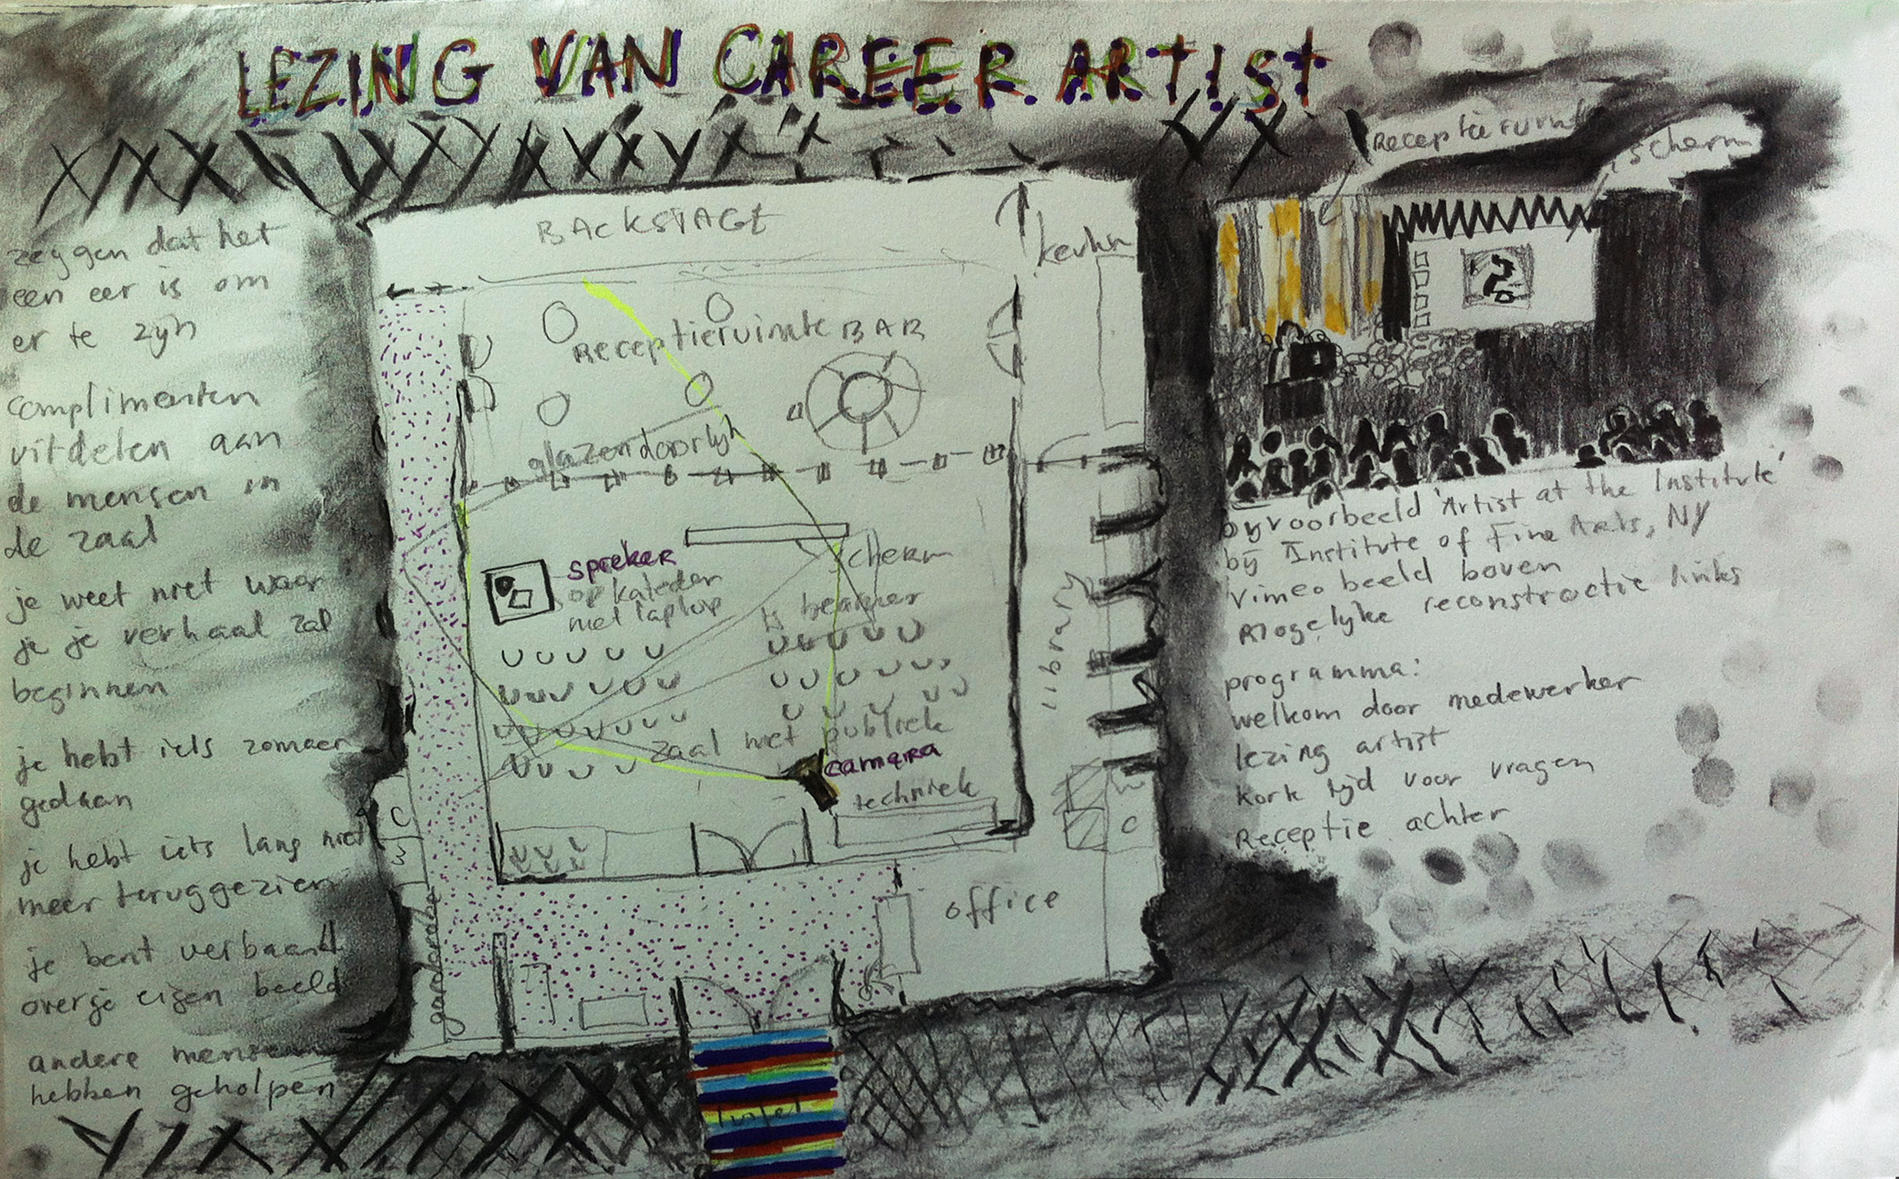 LEZING VAN CAREER ARTIST
zeggen dat het
een eer is om
er te zijn
complimenten
uitdelen aan
de mensen in
de zaal
je weet niet waar
je je verhaal zal
beginnen
je hebt iets zomaar
gedaan
je hebt iets lang niet
meer teruggezien
je bent verbaasd
over je eigen beeld
andere mensen
hebben geholpen
BACKSTAGE
keuken
Receptieruimte BAR
glazen doorkijk
spreker
op kateder
met laptop
scherm
beamer
zaal met publiek
camera
techniek
library
W
C
C
W
garderobe
office
Receptieruimte
scherm
bijvoorbeeld 'Artist at the Institute'
bij Institute of Fine Arts, NY
Vimeo beeld boven
Mogelijke reconstructie links
programma:
welkom door medewerker
lezing artist
kort tijd voor vragen
Receptie achter